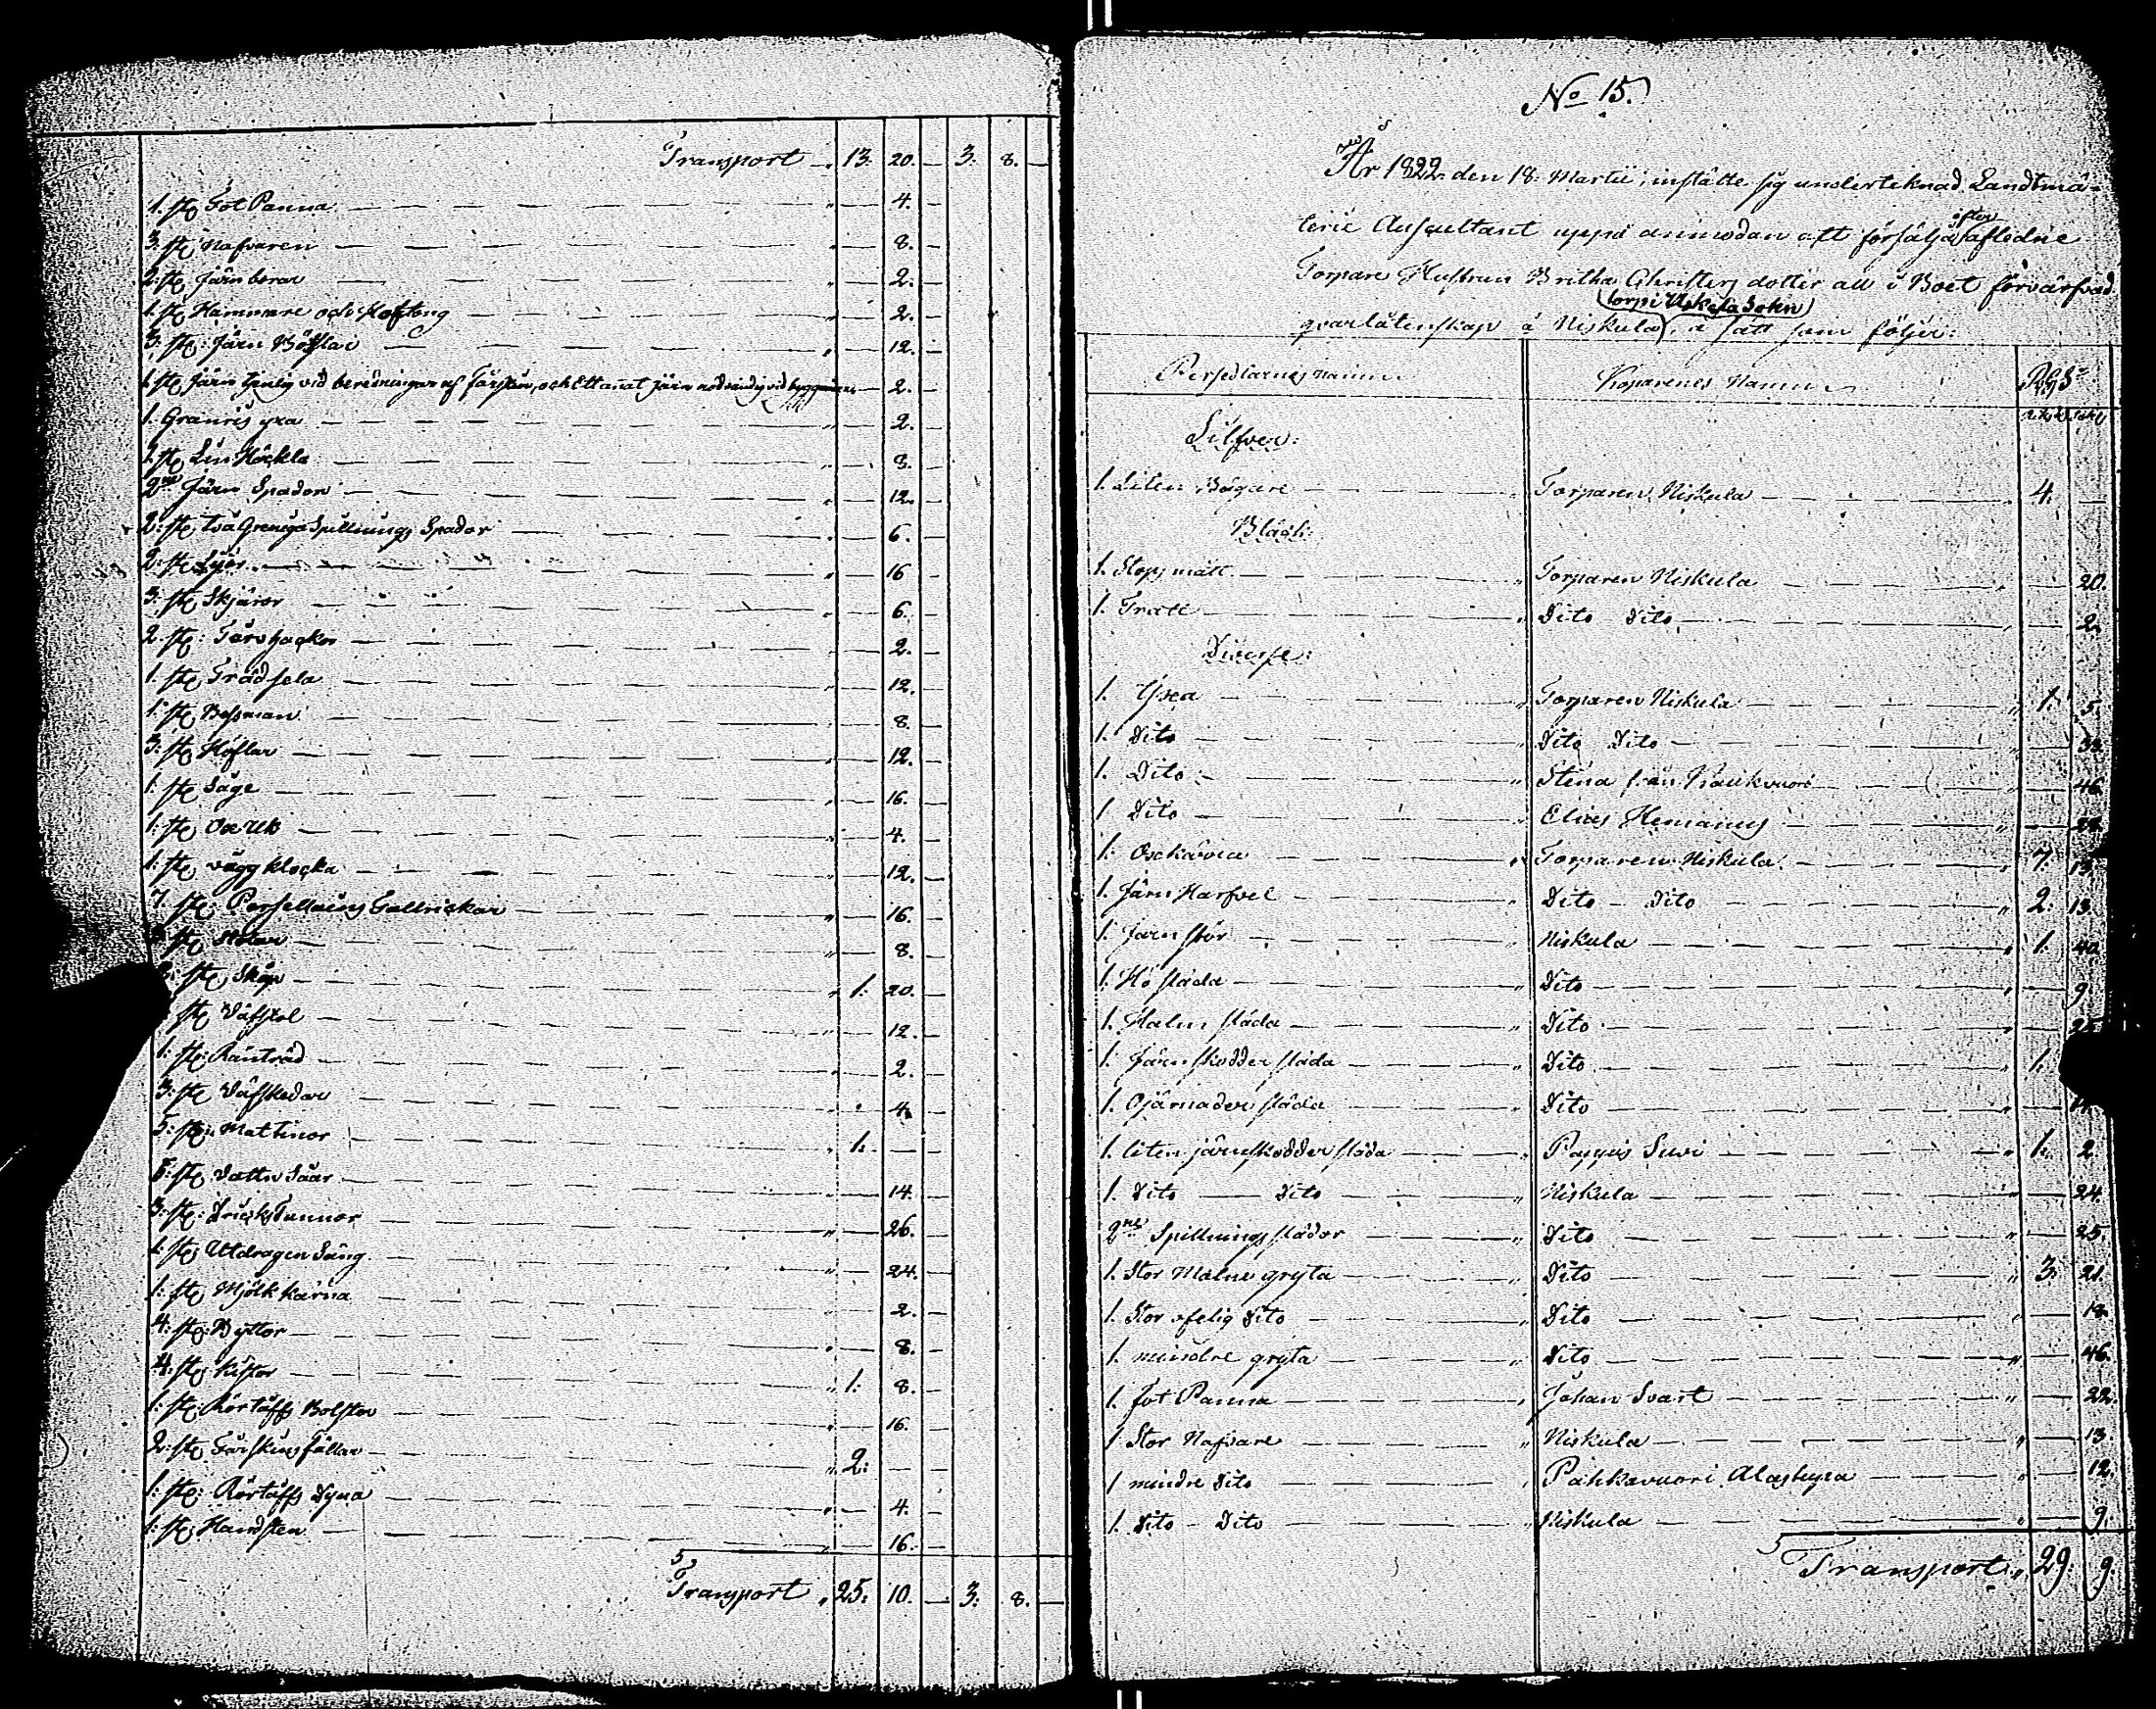 Transport 13. 20. — 3. 8. —
1. st. Fot Panna — 4. —
3. st. Nafvaren — 8. —
2. st. Järn borar — 2. —
1. st. Hammare och Hoftong — 2. —
3. st. Järn — 12. —
1. st. Järn tjenlig vid beredningar af och Ett anat järn nödvändig vid — 2. —
1. Granris yxa — 2. —
1. st. Lin Häckla — 8. —
2ne Järn Spador — 12. —
2. st. två Greniga Spillnings Spador — 6. —
2. st. Lijor — 16 —
3. st. Skjäror — 6. —
2. st. — 2. —
1. st. Trädsela — 12. —
1. st. Besman — 8. —
3. st. Höflar — 12. —
1. st. Såge — 16. —
1. st. — 4. —
1. st. vägg klocka — 12. —
7. st. Porsellains Tallrickar — 16. —
st. Stolar — 8. —
st. Skåp 1. 20. —
st. Väfstol — 12. —
1. st. — 2. —
3. st. Väfskedar — 4. —
5. st. 1. — —
5. st. Vattu Såar — 14. —
3. st. Dricks Tunnor — 26. —
1. st. Utdragen Säng — 24. —
1. st. Mjölk kärna — 2. —
4. st. Byttor — 8. —
4. st. Kistor 1. 8. —
1. st. Bolster — 16. —
2. st. Fårskins fällar 2. — —
1. st. Dyna — 4. —
1. st. Handsten — 16. —
Transport 25. 10. — 3. 8. —
No 15.
År 1822 den 18. Martii, instälte sig undertecknad Landtmä-
terie Auscultant uppå anmodan att försälja
efter
afledne
Torpare Hustrun Britha Christers dotter all i Boet förvärfvad
torp i Uskela Sokn
qvarlåtenskap å Niskula, å sätt som följer:
Persedlarnes namn Köparenes Namn
Silfver:
1. Liten Bägare — Torparen Niskula — 4. —
Bläck:
1. Stops mått — Torparen Niskula — 20.
1. Tratt — Dito Dito — 2.
Diverse:
1. Yxa — Torparen Niskula — 1. 5.
1. Dito — Dito Dito — 33.
1. Dito — Stina från Kaukvuori — 46.
1. Dito — Elias Hemanus —
1. — Torparen Niskula — 7. 13.
1. Järn Harfvel — Dito — Dito 2. 13.
1. Järn stör — Niskula — 1. 40.
1. Hö släda — Dito — 9.
1. Halm släda — Dito —
1. Järnskodder släda — Dito — 1.
1. Ojärnader släda — Dito —
1. liten järnskodder släda — Pappis Suvi — 1. 2.
1. Dito — Dito — Niskula — 24.
2ne Spillnings slädor — Dito — 25.
1. Stor Malm gryta — Dito — 3. 21.
1. Stor ofelig Dito — Dito — 18.
1. mindre gryta — Dito — 46.
1. fot Panna — Johan Svart — 22.
1. Stor Nafvare — Niskula — 13.
1 mindre Dito — Pahkavuori — 12.
1. Dito — Dito — Niskula — 9.
Transport 29. 9.